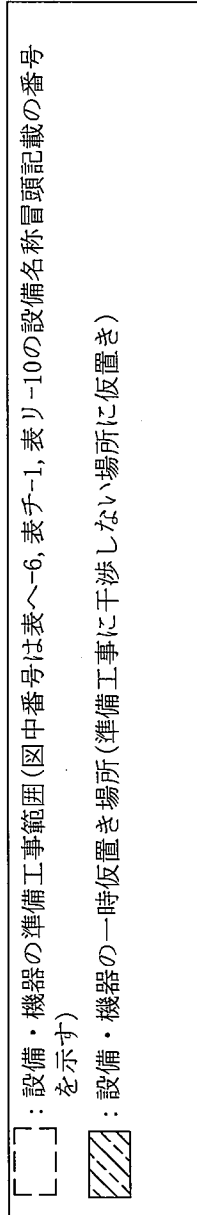 ：設備・機器の準備工事範囲(図中番号は表へ-6, 表チ-1, 表リ-10の設備名称冒頭記載の番号
を示す)
：設備・機器の一時仮置き場所(準備工事に干渉しない場所に仮置き)